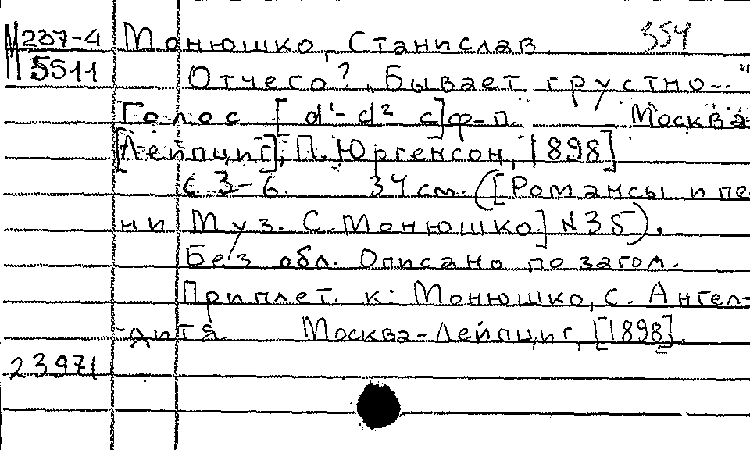 М 237-4 Монюшко, Станислав 354
5511 Отчего? „Бывает грустно..."
Голос [d¹-d² с] ф-п. Москва-
[Лейпциг], П. Юргенсон, [1898]
с 3-6. 34 см. ([Романсы и пе-
ни Муз. С. Монюшко] N 35).
Без обл. Описано по загол.
Приплет. к: Монюшко, С. Ангел-
дитя. Москва-Лейпциг, [1898].
23971